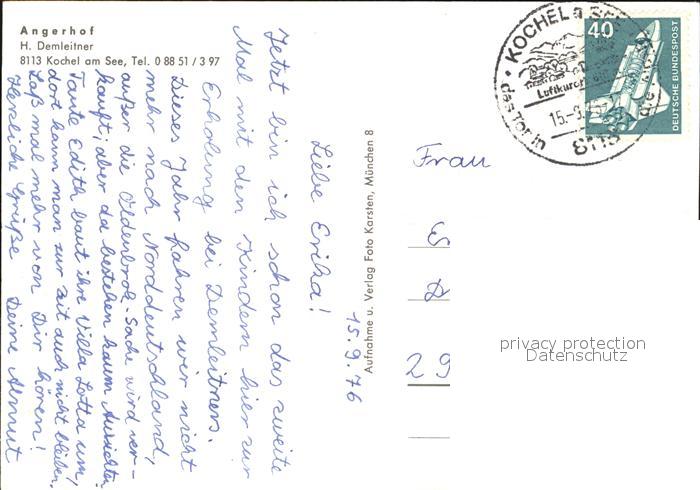 Angerhof
H. Demleitner
8113 Kochel am See, Tel. 0 88 51 / 3 97
15.9.76
Liebe Erika!
Jetzt bin ich schon das zweite
Mal mit den Kindern hier zur
Erholung bei Demleitners.
Dieses Jahr fahren wir nicht
mehr nach Norddeutschland,
außer die Oldenbrok-Sache wird ver-
kauft, aber da bestehen kaum Aussichten.
Tante Edith baut ihre Villa Lotta um,
dort kann man zur Zeit auch nicht bleiben.
Laß mal mehr von Dir hören!
Herzliche Grüße Deine Almut
Aufnahme u. Verlag Foto Karsten, München 8
KOCHEL a. See
Luftkuror
15.-9.76
8113
das Tor in die
40
DEUTSCHE BUNDESPOST
Frau
E
D
29
privacy protection
Datenschutz